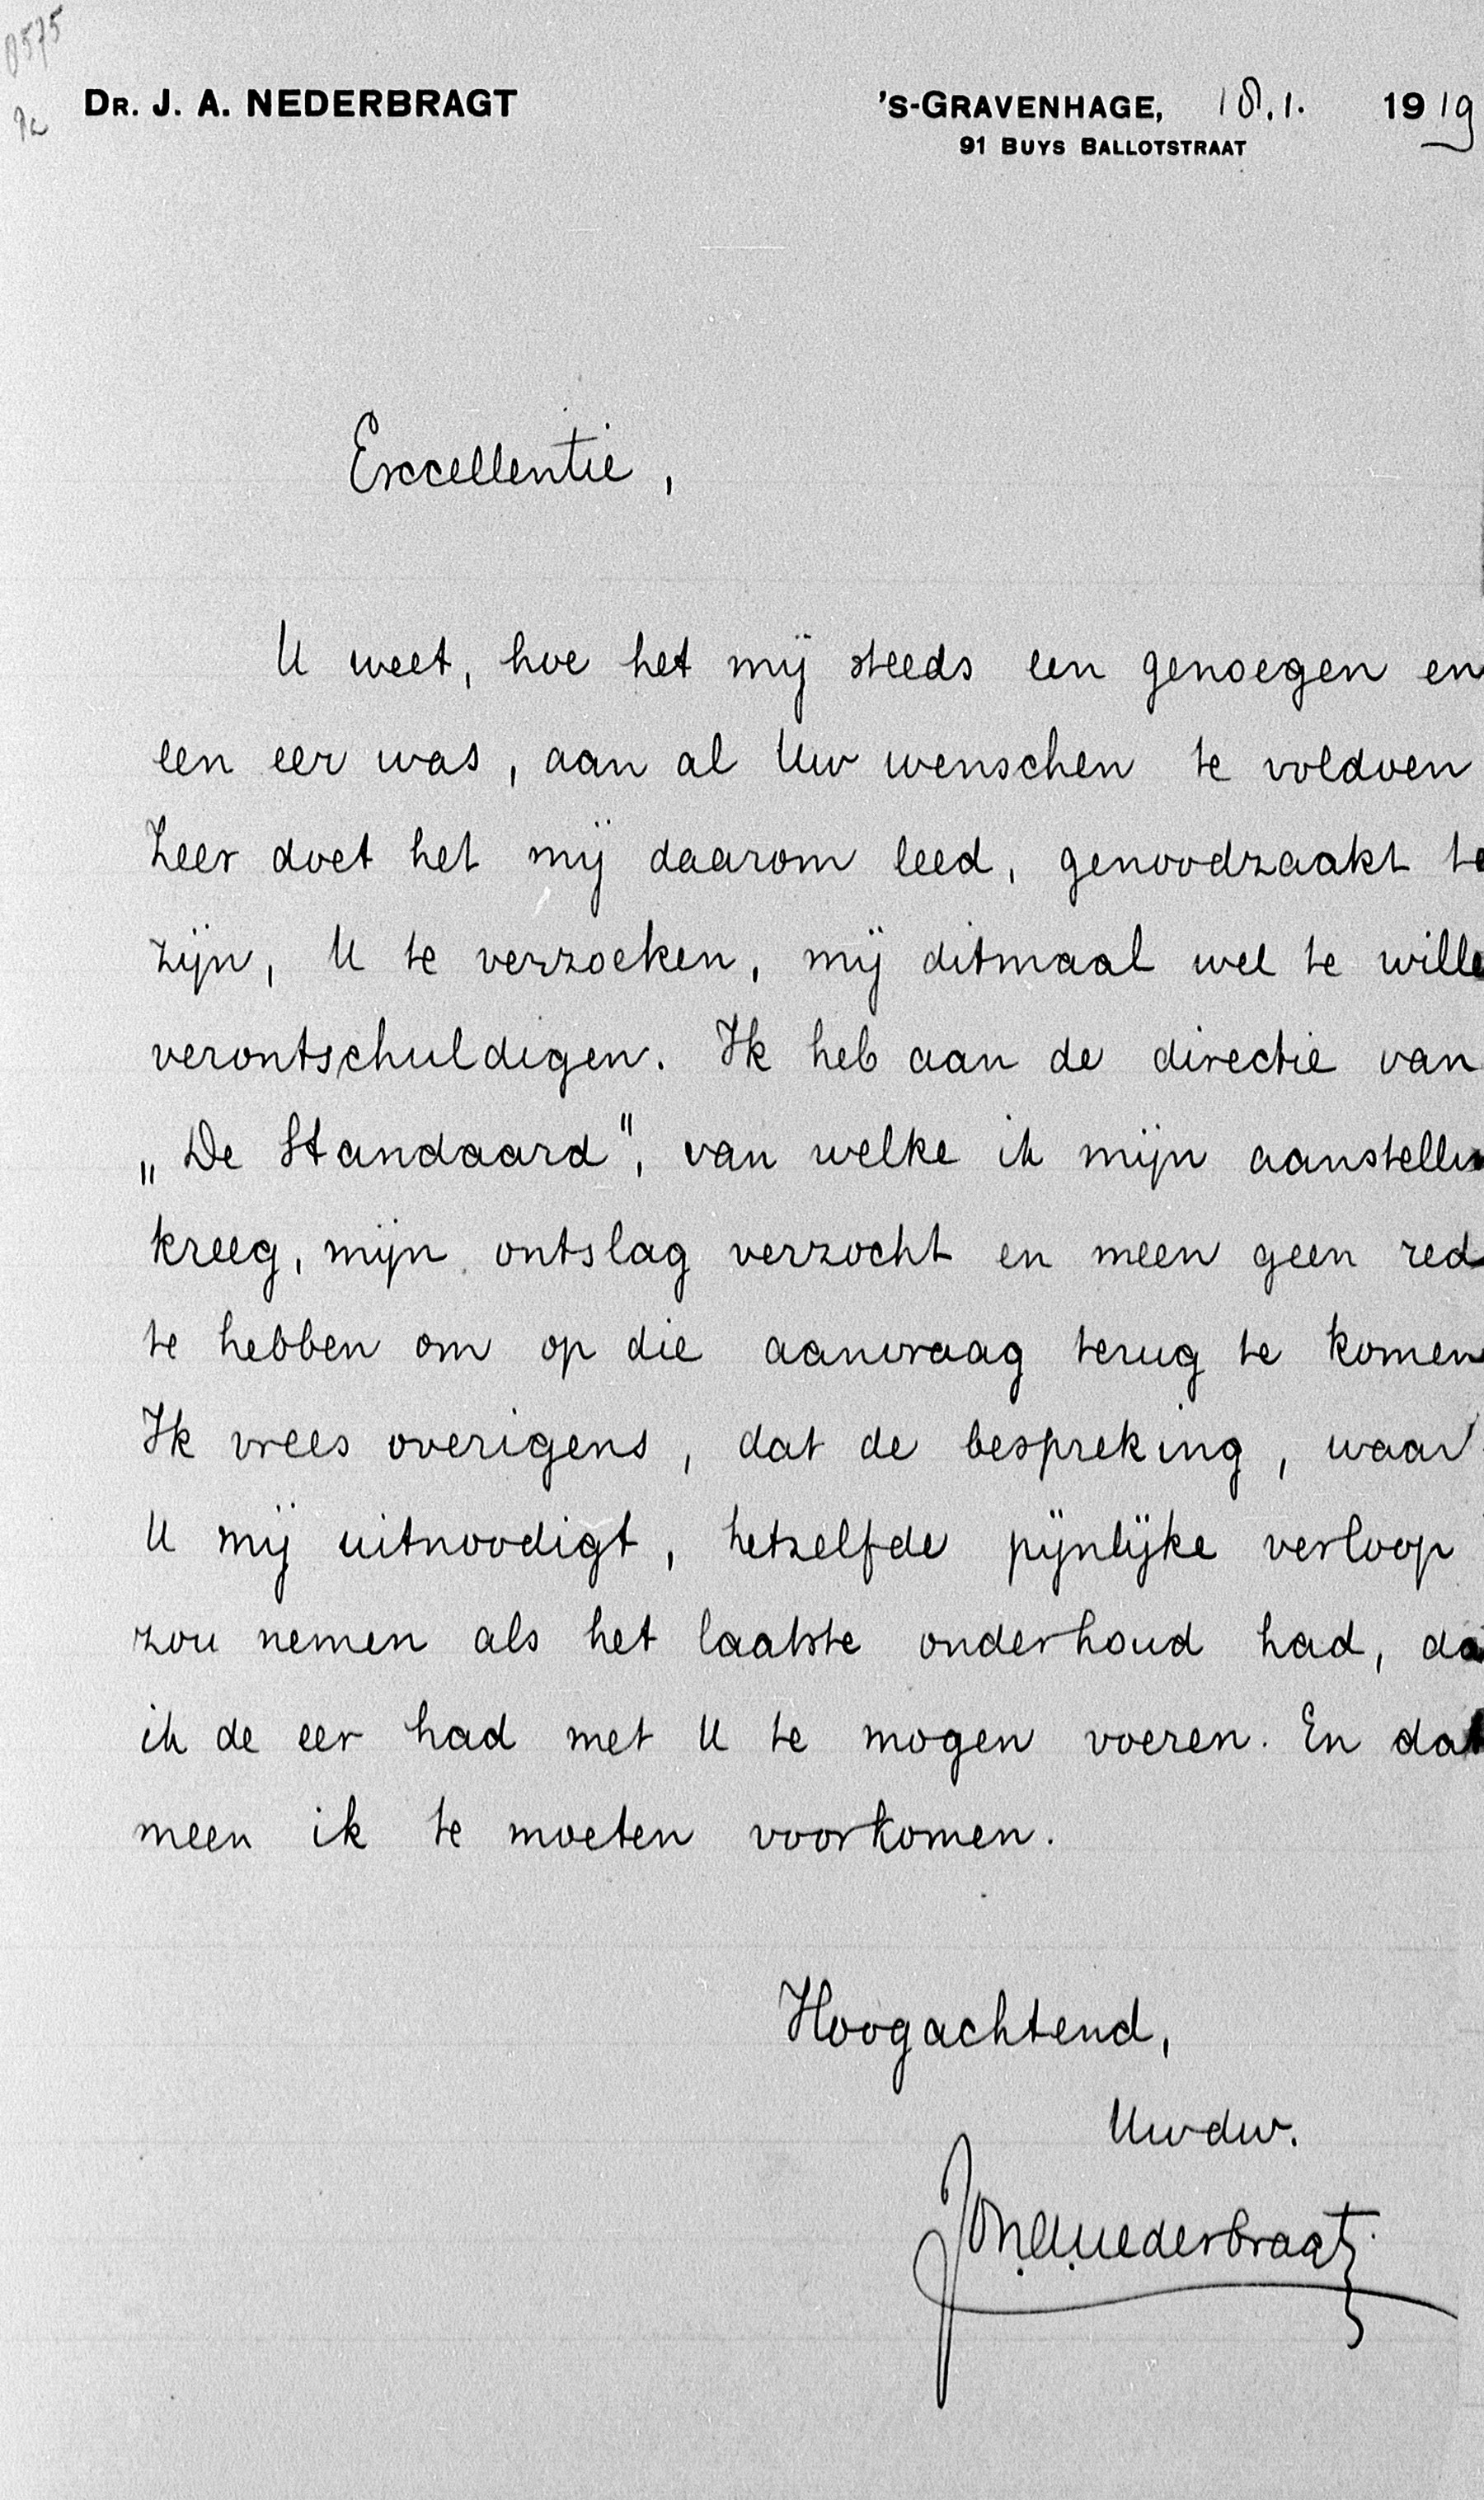 0575
DR. J. A. NEDERBRAGT
'S-GRAVENHAGE, 18.1. 1919
91 BUYS BALLOTSTRAAT
Excellentie,
U weet, hoe het mij steeds een genoegen en
een eer was, aan al Uw wenschen te voldoen
Zeer doet het mij daarom leed, genoodzaakt te
zijn, U te verzoeken, mij ditmaal wel te wille
verontschuldigen. Ik heb aan de directie van
„De Standaard", van welke ik mijn aanstellin
kreeg, mijn ontslag verzocht en meen geen red
te hebben om op die aanvraag terug te komen
Ik vrees overigens, dat de bespreking, waar
U mij uitnoodigt, hetzelfde pijnlijke verloop
zou nemen als het laatste onderhoud had, da
ik de eer had met U te mogen voeren. En dat
meen ik te moeten voorkomen.
Hoogachtend,
Uwdw.
JohANederbragt